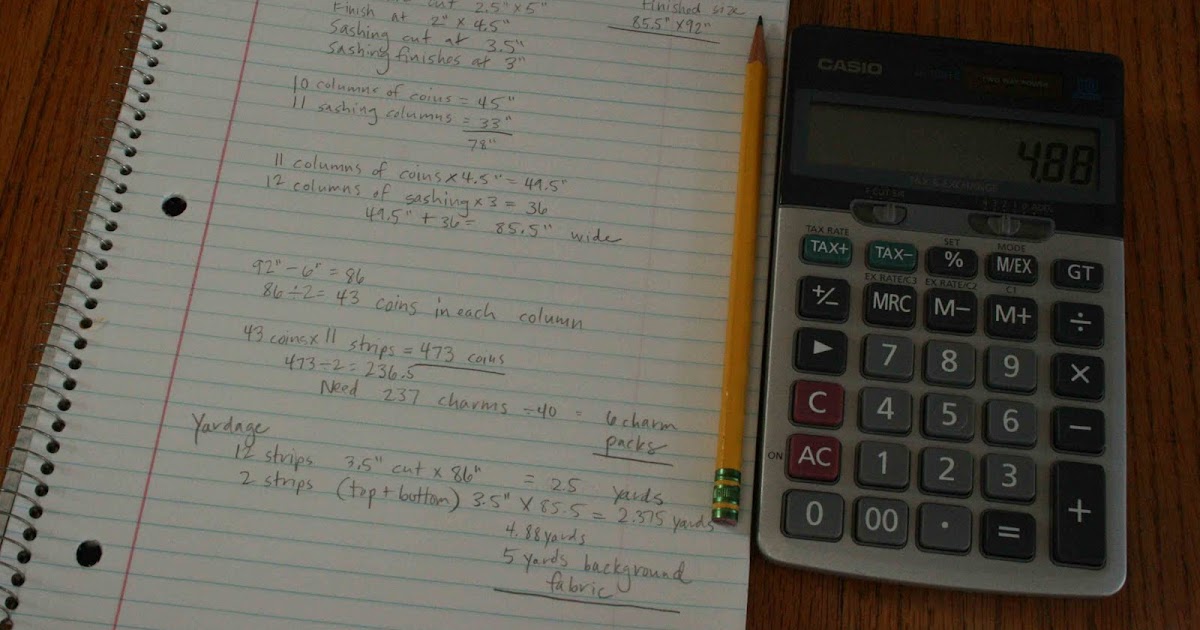 cut 2.5" x 5"
Finish at 2" x 4.5"
Sashing cut at 3.5"
Sashing finishes at 3"
Finished size
85.5" x 92"
10 columns of coins = 45"
11 sashing columns = 33"
78"
11 columns of coins x 4.5" = 49.5"
12 columns of sashing x 3 = 36
49.5" + 36 = 85.5" wide
92" - 6" = 86
86 ÷ 2 = 43 coins in each column
43 coins x 11 strips = 473 coins
473 ÷ 2 = 236.5
Need 237 charms ÷ 40 = 6 charm
packs
Yardage
12 strips 3.5" cut x 86" = 25 yards
2 strips (top + bottom) 3.5" x 85.5 = 2.375 yards
4.88 yards
5 yards background
fabric
CASIO
TWO WAY POWER
4.88
TAX & EXCHANGE
F CUT 5/4
4 2 1 0 ADD2
TAX RATE SET MODE
TAX+ TAX- % M/EX GT
EX RATE/C3 EX RATE/C2 C1
+/- MRC M- M+ ÷
▶ 7 8 9 ×
C 4 5 6 −
ON AC 1 2 3 +
0 00 · =